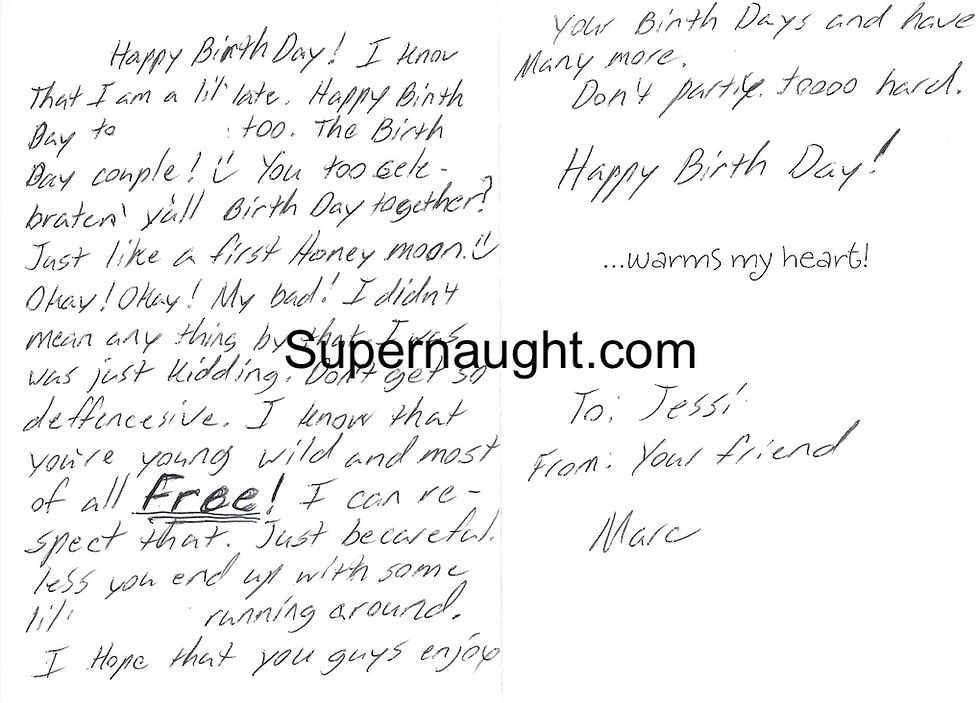 Happy Birth Day! I know
That I am a lil' late. Happy Birth
Day to too. The Birth
Day couple! You too cele-
braten' y'all Birth Day together?
Just like a first Honey moon.
Okay! Okay! My bad! I didn't
mean any thing by that. I was
was just kidding. Don't get so
deffencesive. I know that
you're young wild and most
of all Free! I can re-
spect that. Just becareful.
less you end up with some
lil' running around.
I Hope that you guys enjoy
your Birth Days and have
Many more.
Don't partie toooo hard.
Happy Birth Day!
...warms my heart!
Supernaught.com
To: Jessi
From: Your friend
Marc